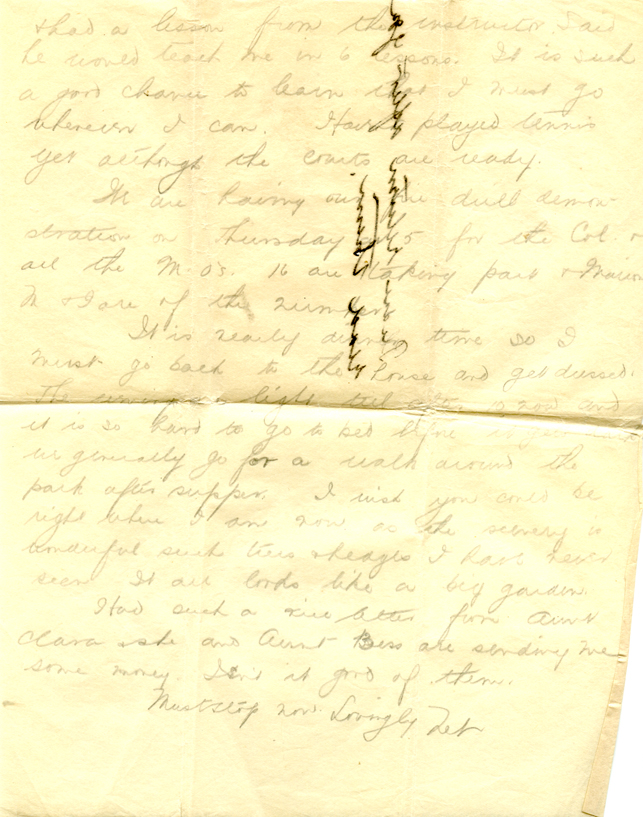 & had a lesson from the instructor. I said
he would teach me in 6 lessons. It is such
a good chance to learn that I must go
whenever I can. Haven't played tennis
yet although the courts are ready.
We are having our the drill demon-
stration on Thursday at 5 for the Col. &
all the M.O's. 16 are taking part & Marion
M & I are of the number
It is nearly dinner time so I
must go back to the house and get dressed.
The evenings light till after 10 now and
it is so hard to go to bed before
we generally go for a walk around the
park after supper. I wish you could be
right where I am now as the scenery is
wonderful such trees & hedges I have never
seen. It all looks like a big garden.
Had such a nice letter from Aunt
Clara & she and Aunt Bess are sending me
some money. Isn't it good of them.
Must stop now. Lovingly